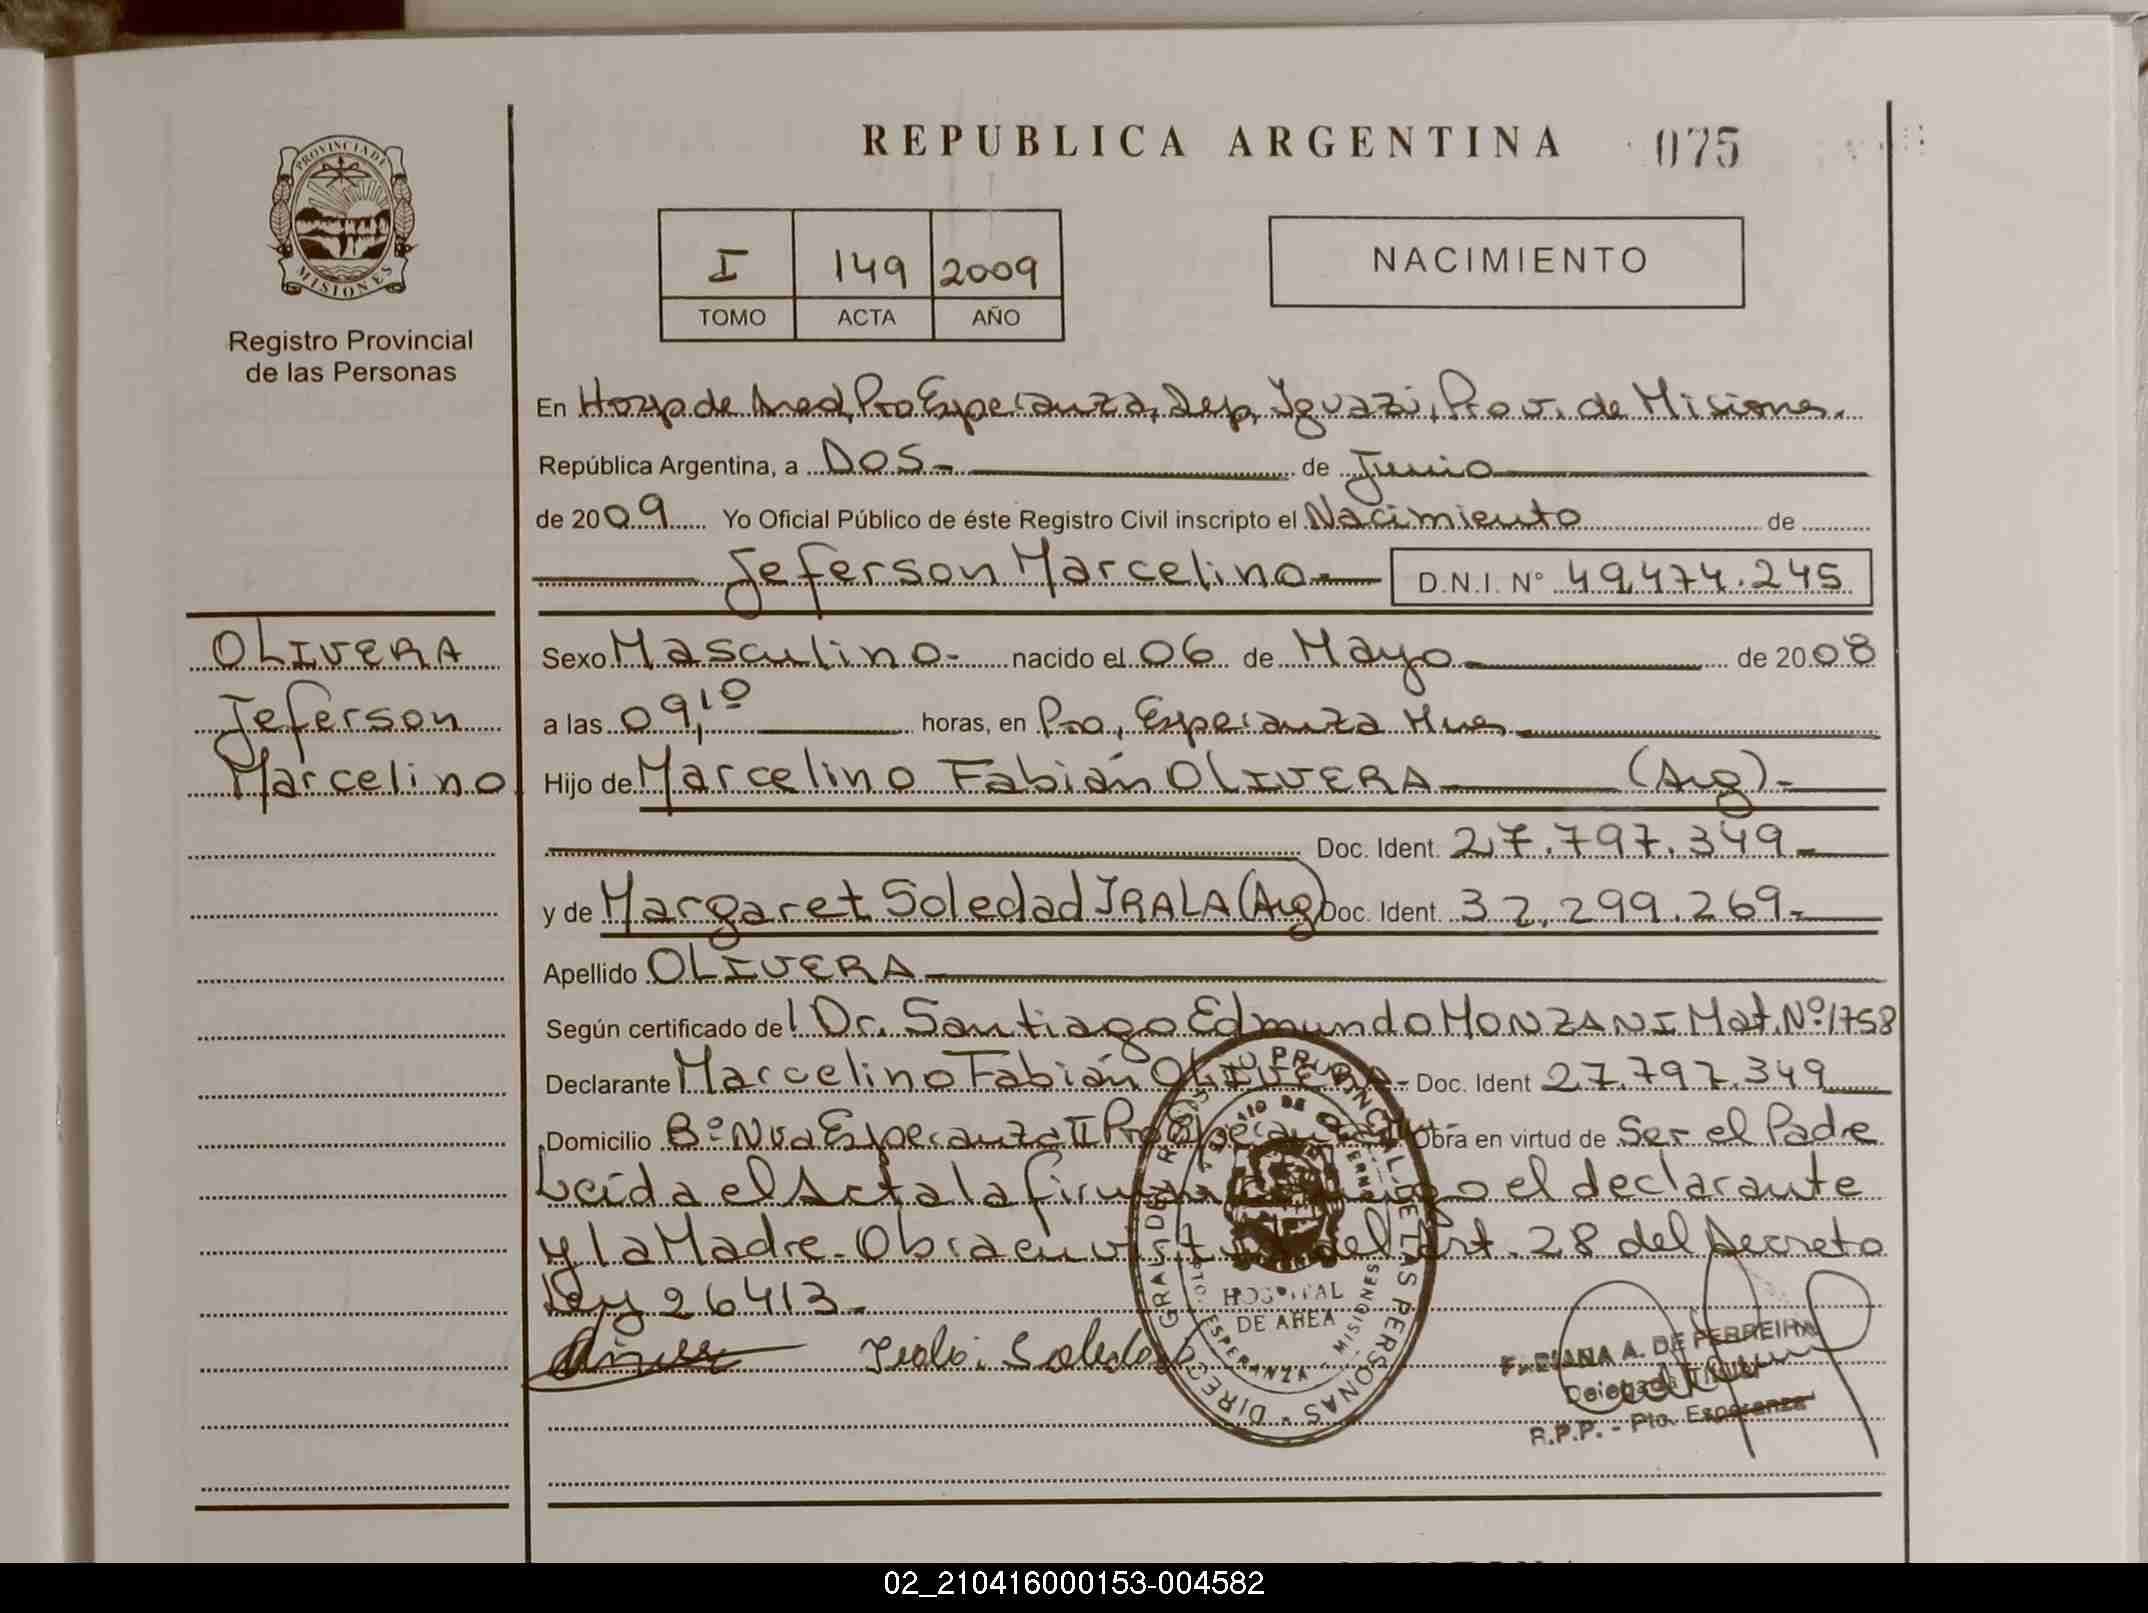 REPUBLICA ARGENTINA 075
PROVINCIA DE
MISIONES
Registro Provincial
de las Personas
I 149 2009
TOMO ACTA AÑO
NACIMIENTO
En Hosp de Area, Pto Esperanza, Dep, Iguazú, Prov. de Misiones.
República Argentina, a Dos.- de Junio
de 2009 Yo Oficial Público de éste Registro Civil inscripto el Nacimiento de
Jeferson Marcelino.- D.N.I. Nº 49.474.245
OLIVERA
Jeferson
Marcelino
Sexo Masculino.- nacido el 06 de Mayo de 2008
a las 09,10 horas, en Pto, Esperanza Mnes
Hijo de Marcelino Fabián OLIVERA (Arg).-
Doc. Ident. 27.797.349.-
y de Margaret Soledad IRALA (Arg) Doc. Ident. 32.299.269.-
Apellido OLIVERA.-
Según certificado del Dr. Santiago Edmundo MONZANI Mat. Nº 1758
Declarante Marcelino Fabián OLIVERA.- Doc. Ident 27.797.349
Domicilio Bº Nva Esperanza II Pto Esperanza Obra en virtud de Ser el Padre
Leída el Acta la firman conmigo el declarante
y la Madre. Obra en virtud del Art. 28 del Decreto
Ley 26413.-
Irala Soledad
DIREC. GRAL. DEL REGISTRO PROVINCIAL DE LAS PERSONAS
HOSPITAL
DE AREA
PTO. ESPERANZA - MISIONES
FABIANA A. DE FERREIRA
Delegada Titular
R.P.P. - Pto. Esperanza
02_210416000153-004582